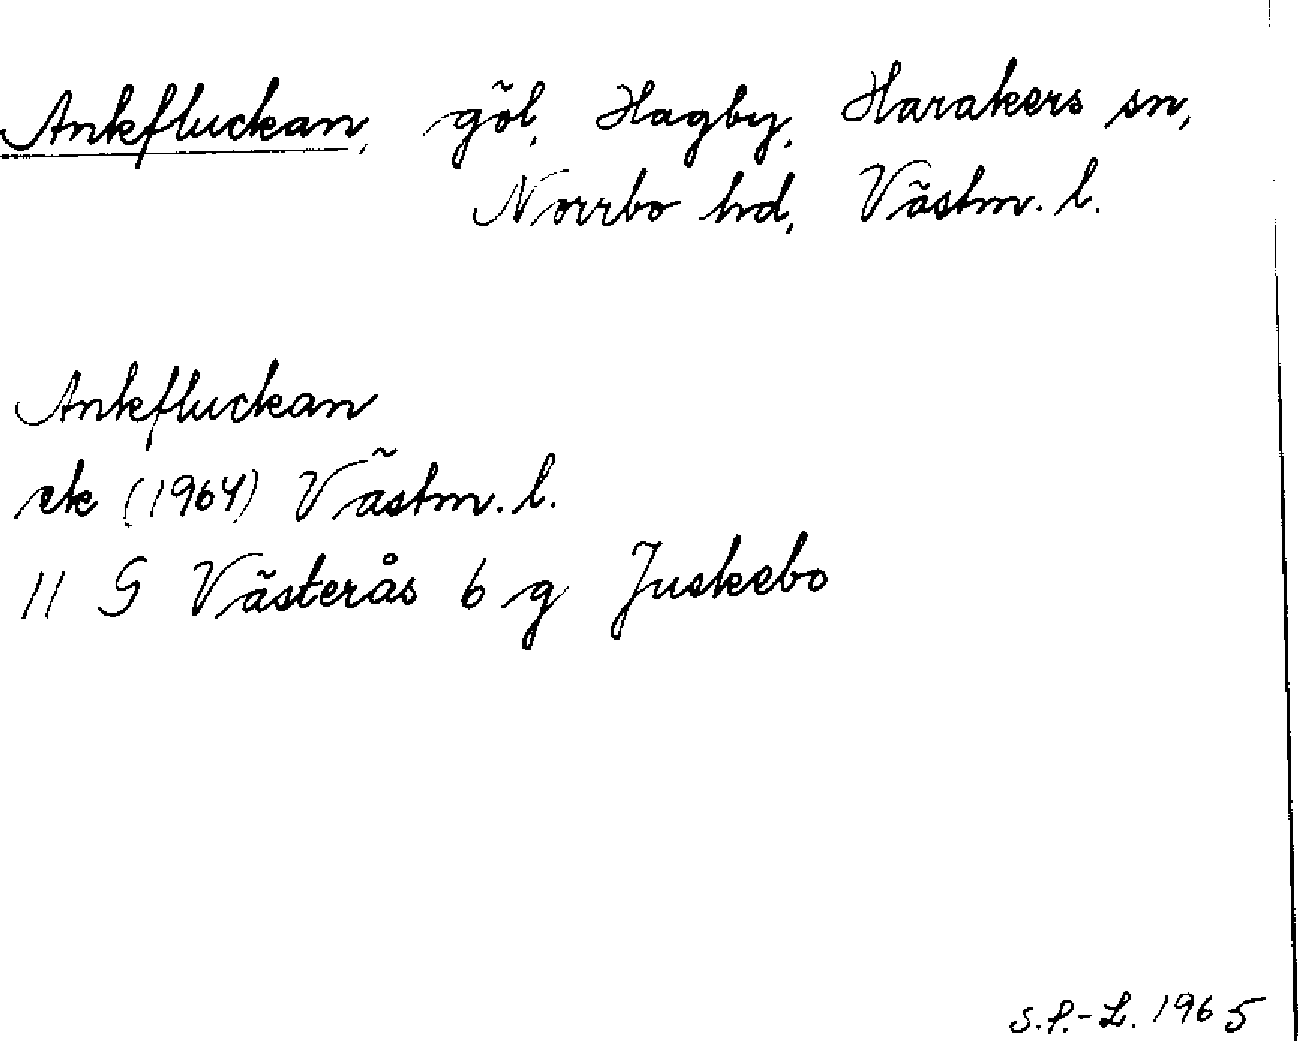 Ankfluckan, göl, Hagby, Harakers sn,
Norrbo hd, Västm. l.
Ankfluckan
ek (1964) Västm. l.
11 G Västerås 6 g Juskebo
S.P.-L. 1965